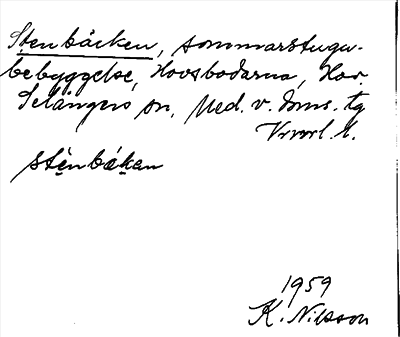 Stenbäcken, sommarstuge-
bebyggelse, Hovsbodarna, Hov.
Selångers sn, Med. v. doms. tg
Vnorl. l.
stènbä́kan
1959
K. Nilsson